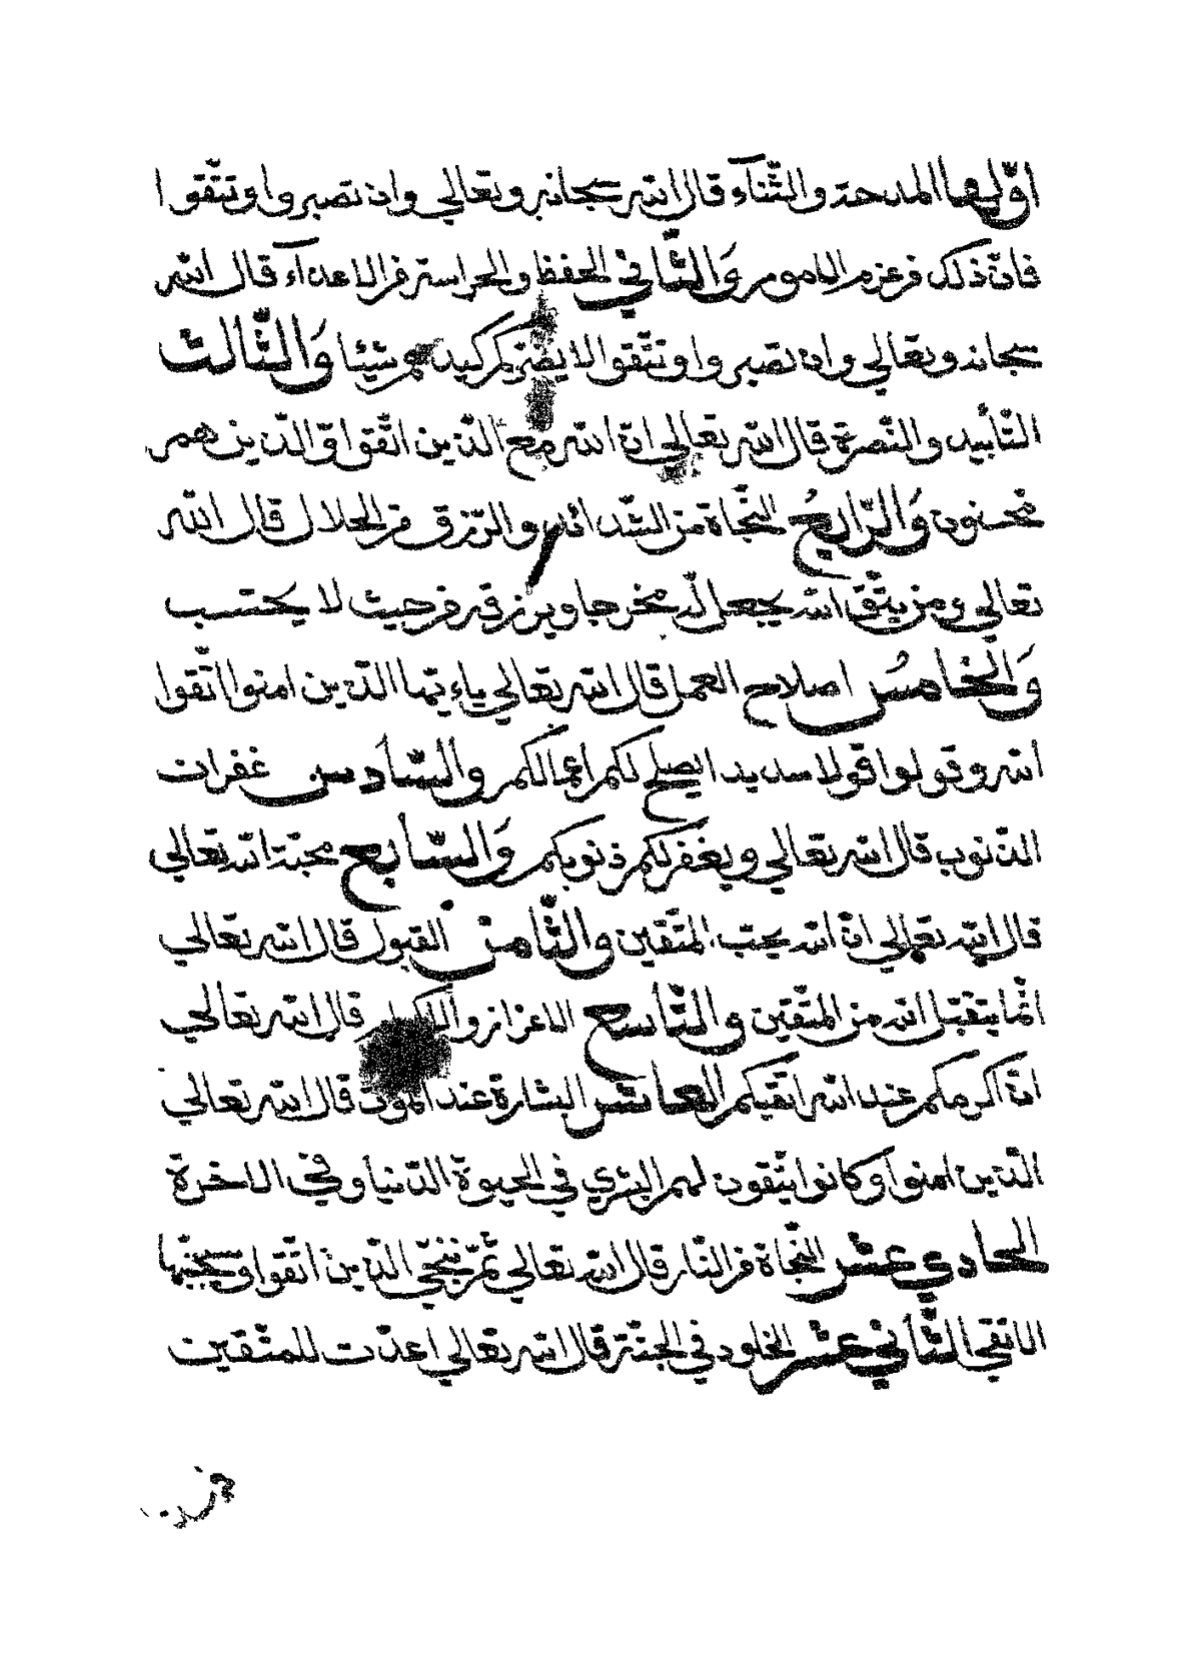 اوّلها المدحة والثّنآء قال الله سبحانه وتعالي وان تصبروا وتتّقوا
فانّ ذلك من عزم الامور وَالثّاني الحفظ والحراسة من الاعدآء قال الله
سبحانه وتعالي وان تصبروا وتتّقوا لا يضرّكم كيدهم شيئا وَالثّالث
التّأييد والنّصرة قال الله تعالي انّ الله مع الذّين اتّقوا وّالذين هم
محسنون وَالرّابعُ النّجاة من الشّدائد والرّزق من الحلال قال الله
تعالي ومن يتّق الله يجعل لّه مخرجا ويرزقه من حيث لا يحتسب
وَالخامسُ اصلاح العمل قال الله تعالي ياءيّها الذّين امنوا اتّقوا
الله وقولوا قولا سديدا يصلح لكم اعمالكم والسّادس غفران
الذّنوب قال الله تعالي ويغفر لكم ذنوبكم وَالسّابع محبّة الله تعالي
قال الله تعالي انّ الله يحبّ المتّقين والثّامن القبول قال الله تعالي
انّما يتقبّل الله من المتّقين والتّاسع الاعزاز والاكرام قال الله تعالي
انّ اكرمكم عند الله اتقيكم العاشر البشارة عند الموت قال الله تعالي
الذّين امنوا وكانوا يتّقون لهم البشري في الحيوة الدّنيا وفي الاخرة
الحادي عشر النّجاة من النّار قال الله تعالي ثمّ ننجّي الذّين اتّقوا وسيجنّبها
الاتقي الثّاني عشر الخلود في الجنّة قال الله تعالي اعدّت للمتّقين